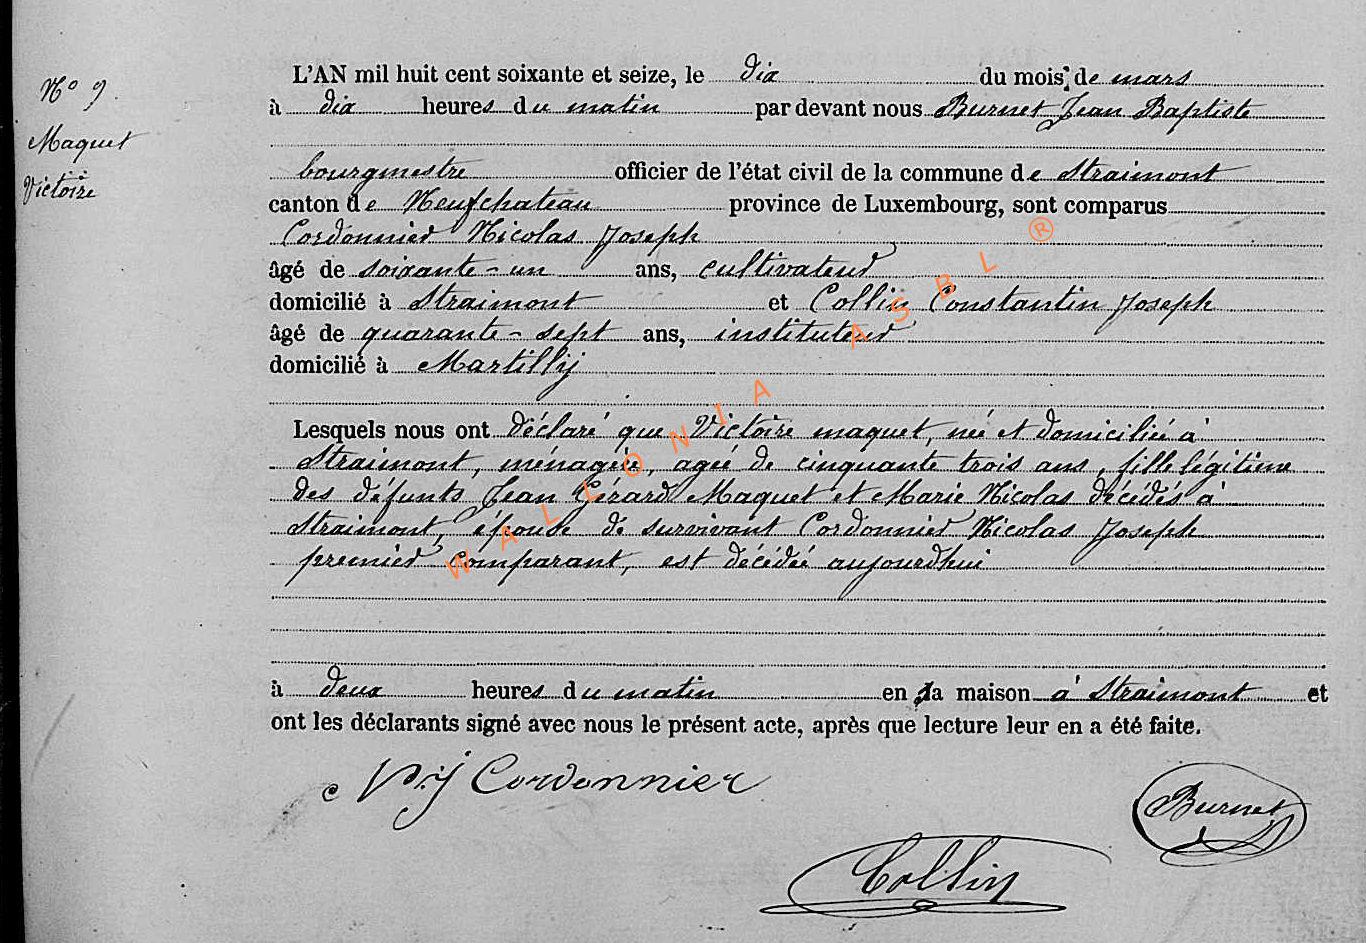 N° 9.
Maquet
Victoire
L'AN mil huit cent soixante et seize, le dix du mois de mars
à dix heures du matin par devant nous Burnet Jean Baptiste
bourgmestre officier de l'état civil de la commune de Straimont
canton de Neufchateau province de Luxembourg, sont comparus
Cordonnier Nicolas Joseph
âgé de soixante-un ans, cultivateur
domicilié à Straimont et Collin Constantin Joseph
âgé de quarante-sept ans, instituteur
domicilié à Martilly
Lesquels nous ont déclaré que Victoire maquet, née et domiciliée à
Straimont, ménagère, agée de cinquante trois ans, fille légitime
des défunts Jean Gérard Maquet et Marie Nicolas décédés à
Straimont, épouse de survivant Cordonnier Nicolas Joseph
premier comparant, est décédée aujourdhui
à deux heures du matin en sa maison à Straimont et
ont les déclarants signé avec nous le présent acte, après que lecture leur en a été faite.
N.j Cordonnier
Burnet
Collin
WALLONIA ASBL ®